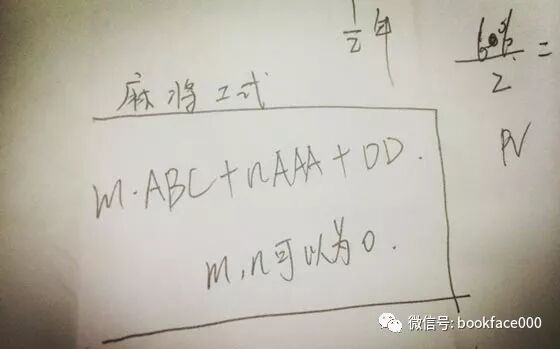 1/2年
6%/2 =
PV
麻将工式
m·ABC+nAAA+DD.
m,n可以为0.
微信号: bookface000